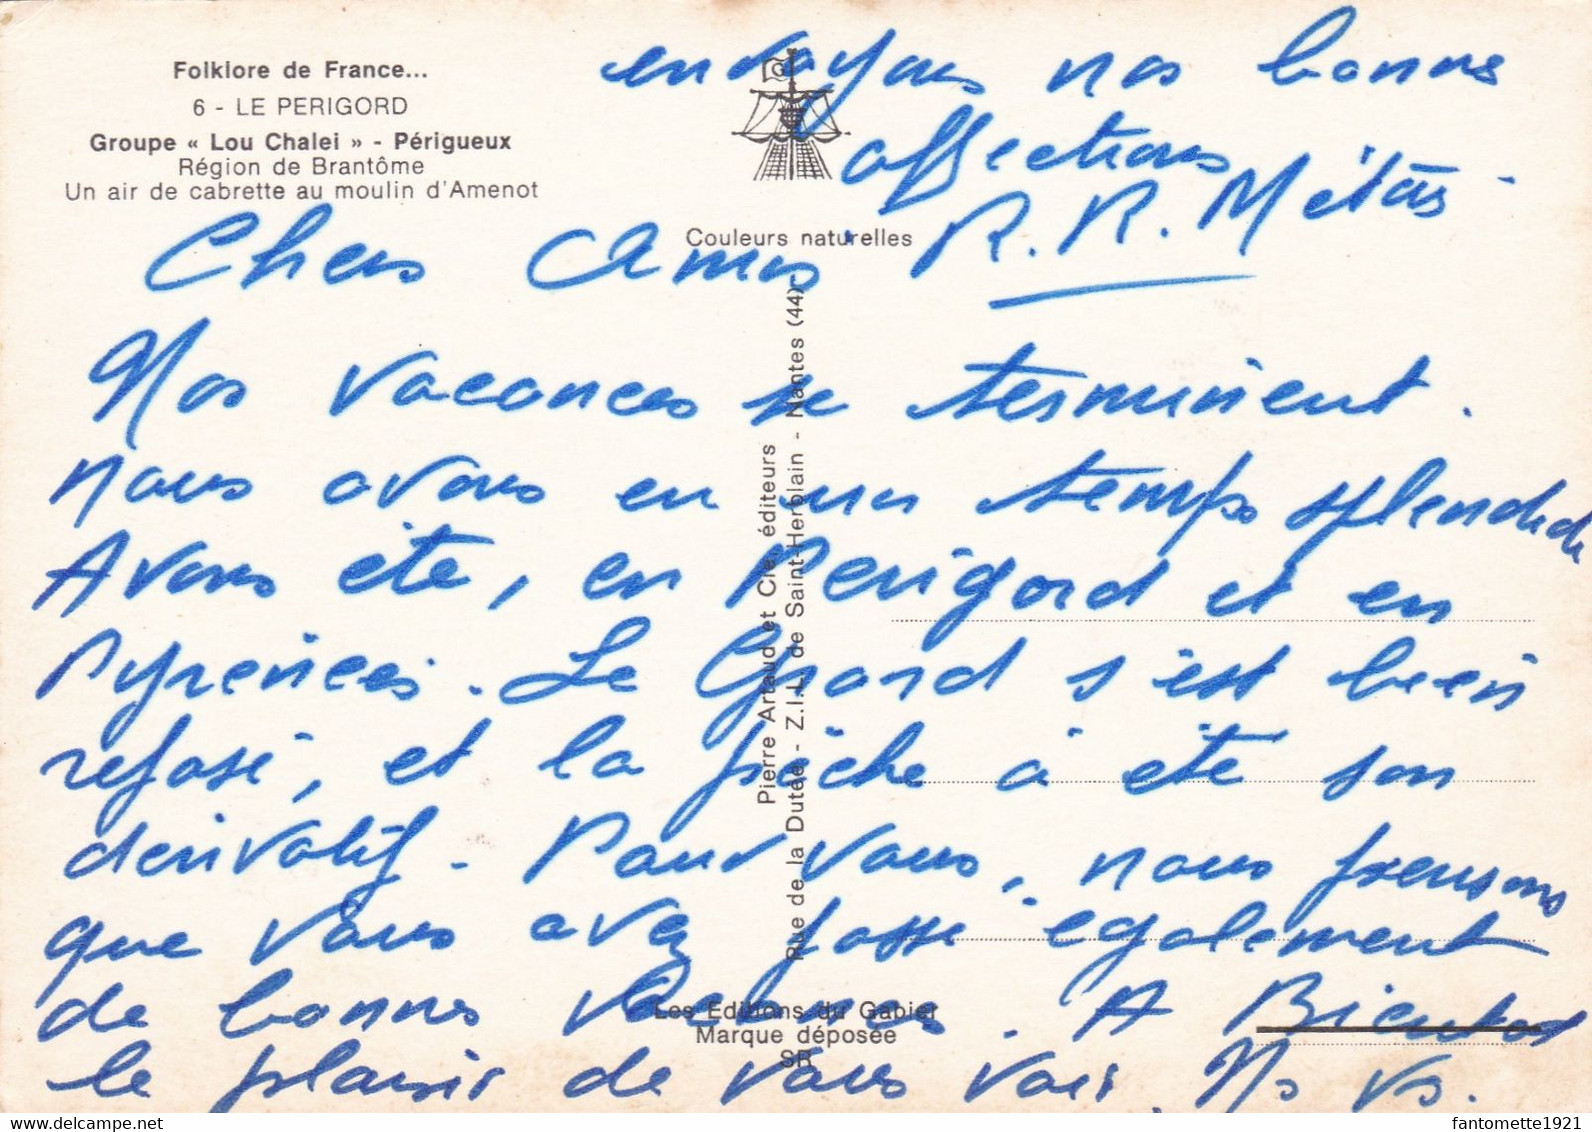 Folklore de France...
6 - LE PERIGORD
Groupe « Lou Chalei » - Périgueux
Région de Brantôme
Un air de cabrette au moulin d'Amenot
Couleurs naturelles
Pierre Artaud et Cie, éditeurs
Rue de la Dutée - Z.I.L. de Saint-Herblain - Nantes (44)
Les Editions du Gabier
Marque déposée
SR
Chers Amis
Nos vacances se terminent.
nous avons eu un temps splendide
Avons été, en Périgord et en
Pyrénées. Le Grand s'est bien
reposé, et la pêche a été son
dérivatif. Pour vous, nous pensons
que vous avez passé également
de bonnes vacances. A Bientôt
le plaisir de vous voir. Ns vs.
envoyons nos bonnes
affections.
R. R.
fantomette1921